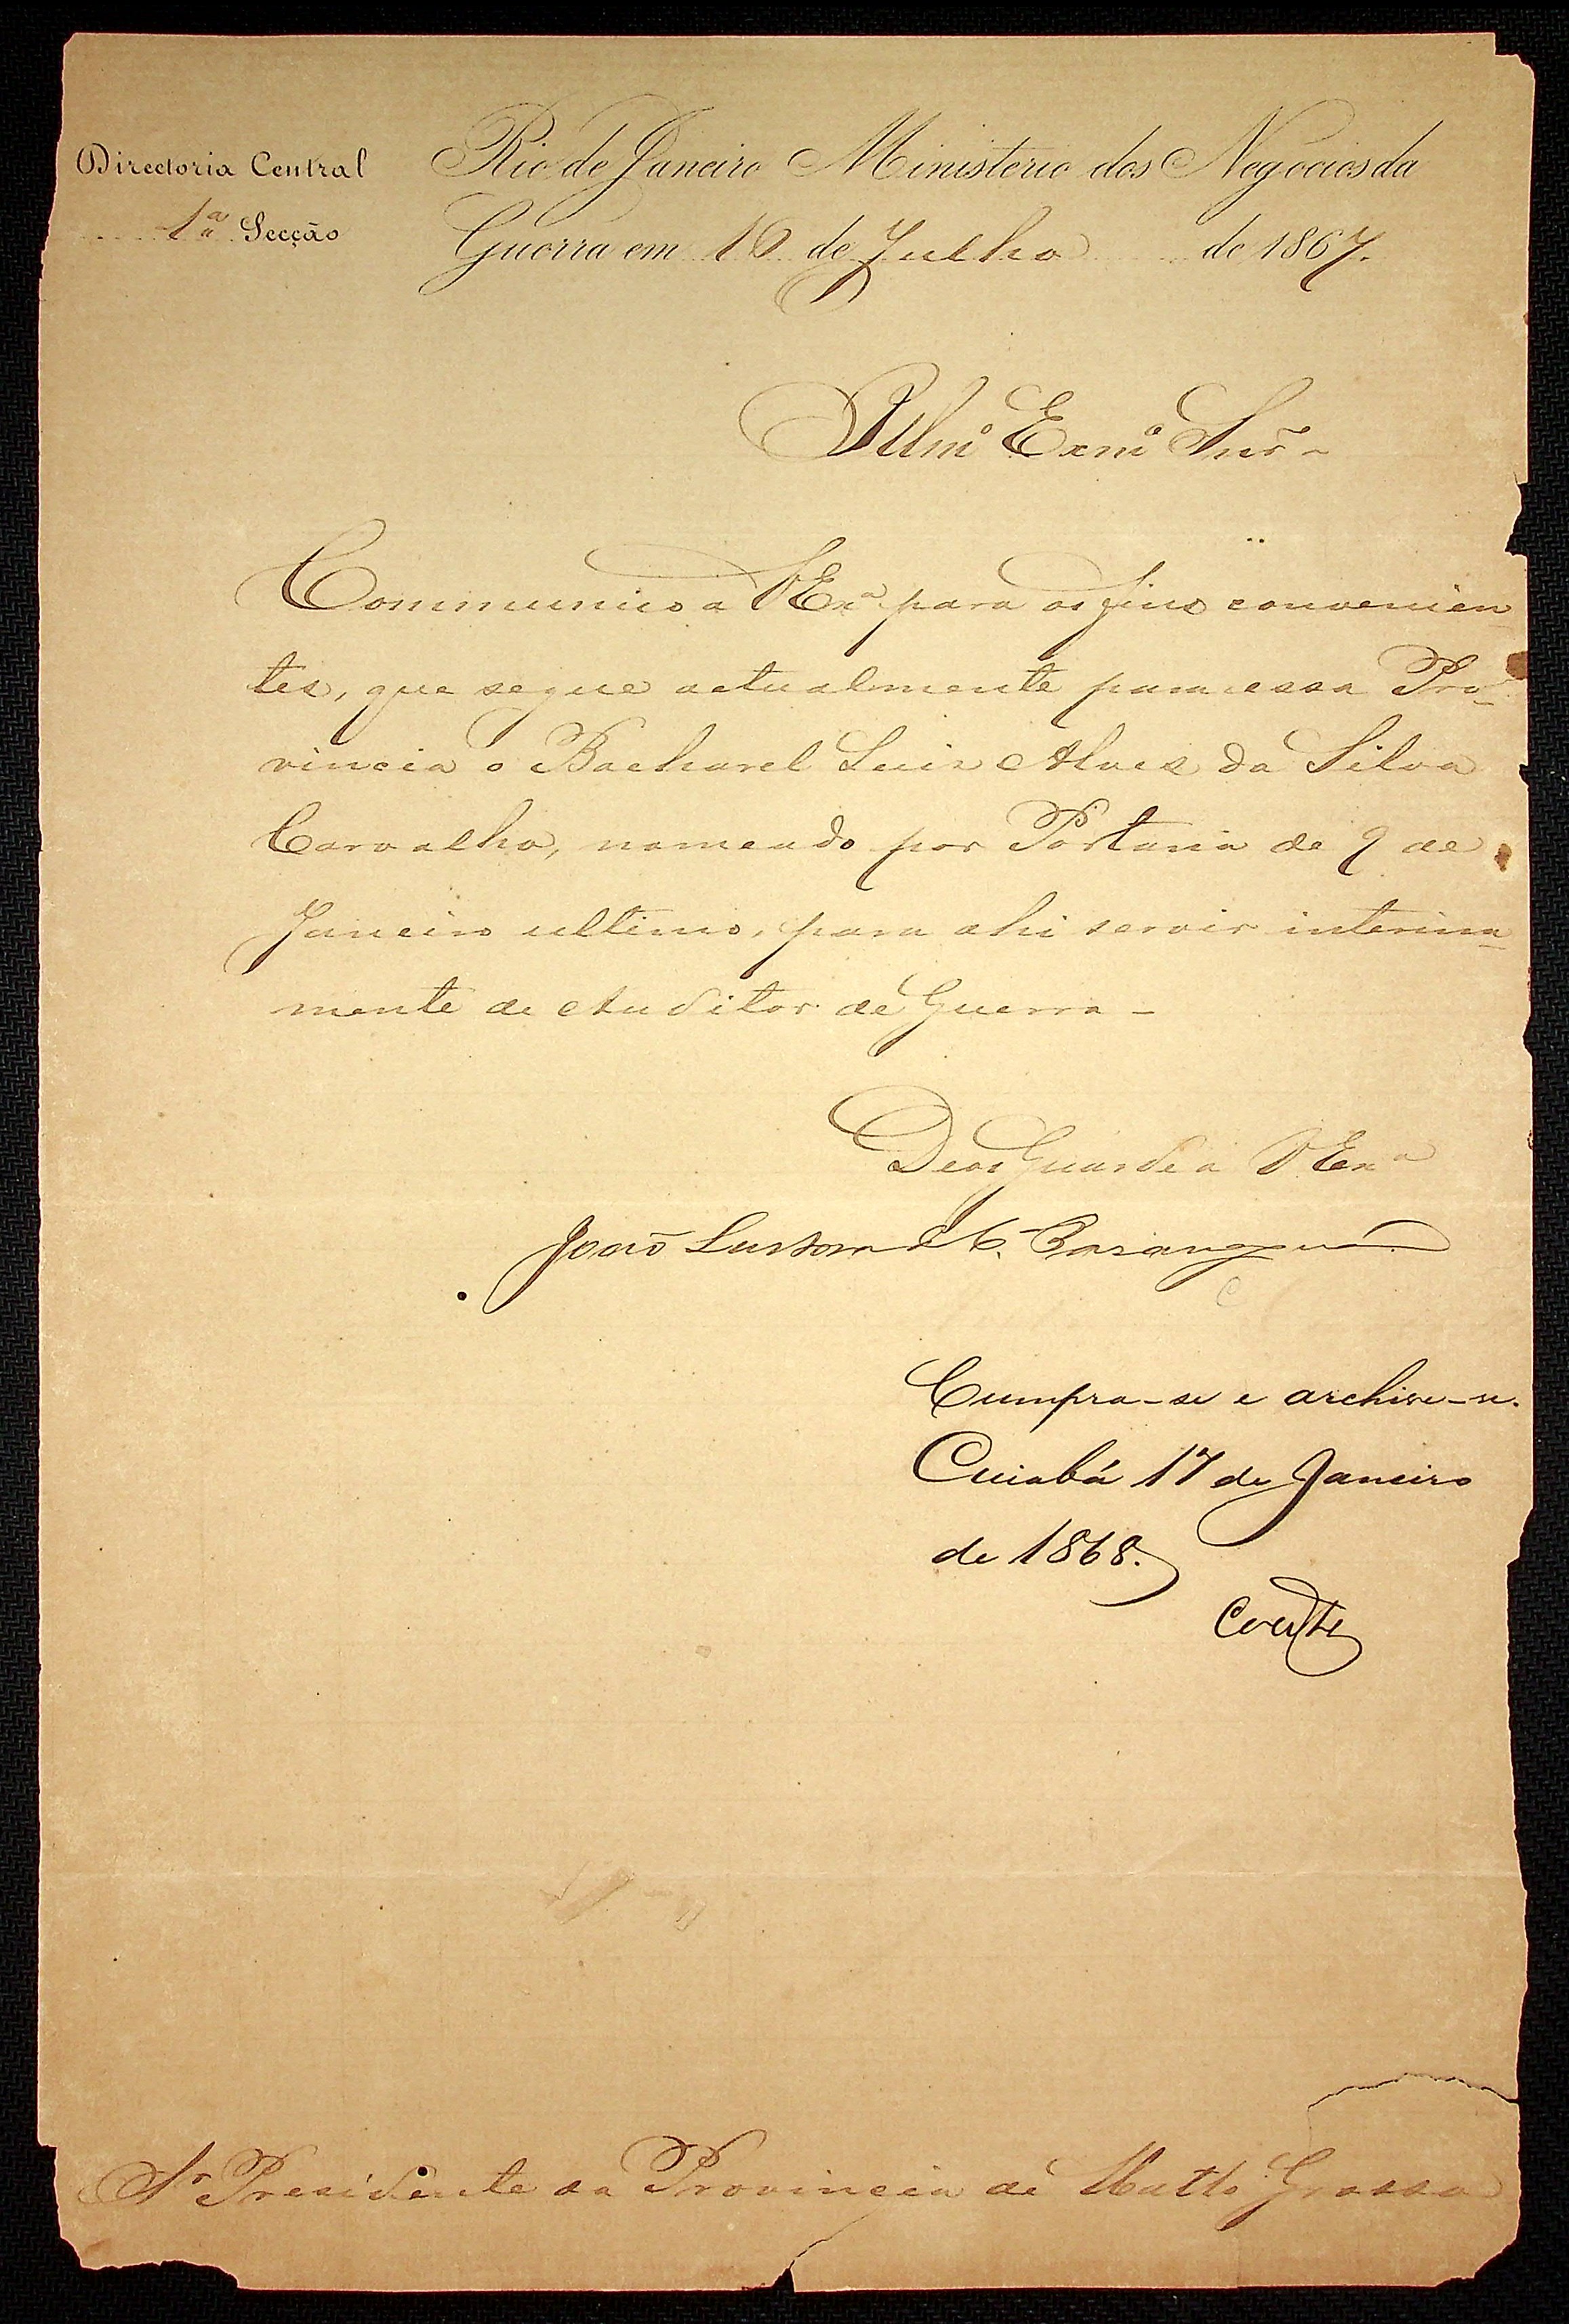 Directoria Central
1ª Secção
Rio de Janeiro Ministerio dos Negocios da
Guerra em 16 de Julho de 1867.
Illmº Exmº Snr̃ -
Communico a V Exª para os fins convenien
tes, que segue actualmente para essa Pro
vincia o Bacharel Luiz Alves da Silva
Carvalho, nomeado por Portaria de 9 de
Janeiro ultimo, para ahi servir interina
mente de Auditor de Guerra -
Deos Guarde a V Exª
João Lustosa da C. Paranaguá
Cumpra-se e archive-se.
Cuiabá 17 de Janeiro
de 1868.
Sr Presidente da Provincia de Matto Grosso